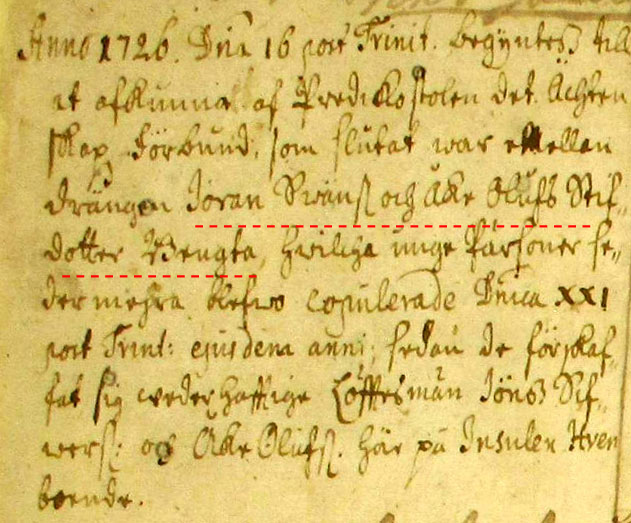 Anno 1726. Dnca 16 post Trinit. begyntes till
at afkunna af Predikostolen det Ächten
skap förbund, som slutat war emellan
drängen Jöran Swänß och Åke Olufs Stif-
dotter Bengta, hwilcka unge Parsoner se-
dermehra blefwo copulerade Dnica XXI
post Trinit: ejusdem anni, sedan de förskaf-
fat sig wederhafftige Löfftesmän Jöns Sif-
wers: og Åke Olufs. här på Insulen Hven
boende.